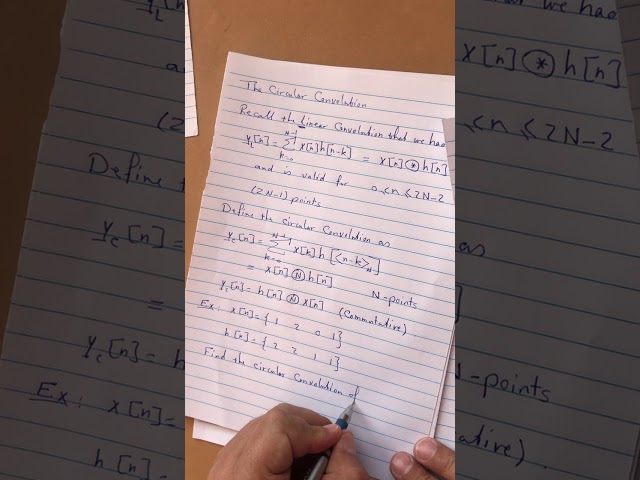 The Circular Convolution
Recall the Linear Convolution that we had
y_L[n] = Σ_{k=0}^{N-1} x[n] h[n-k] = x[n] ⊛ h[n]
and is valid for 0 ≤ n ≤ 2N-2
(2N-1) points
Define the circular Convolution as
y_c[n] = Σ_{k=0}^{N-1} x[k] h[<n-k>_N]
= x[n] Ⓝ h[n] N-points
y_c[n] = h[n] Ⓝ x[n] (Commutative)
Ex: x[n] = { 1 2 0 1 }
h[n] = { 2 2 1 1 }
Find the circular Convolution of